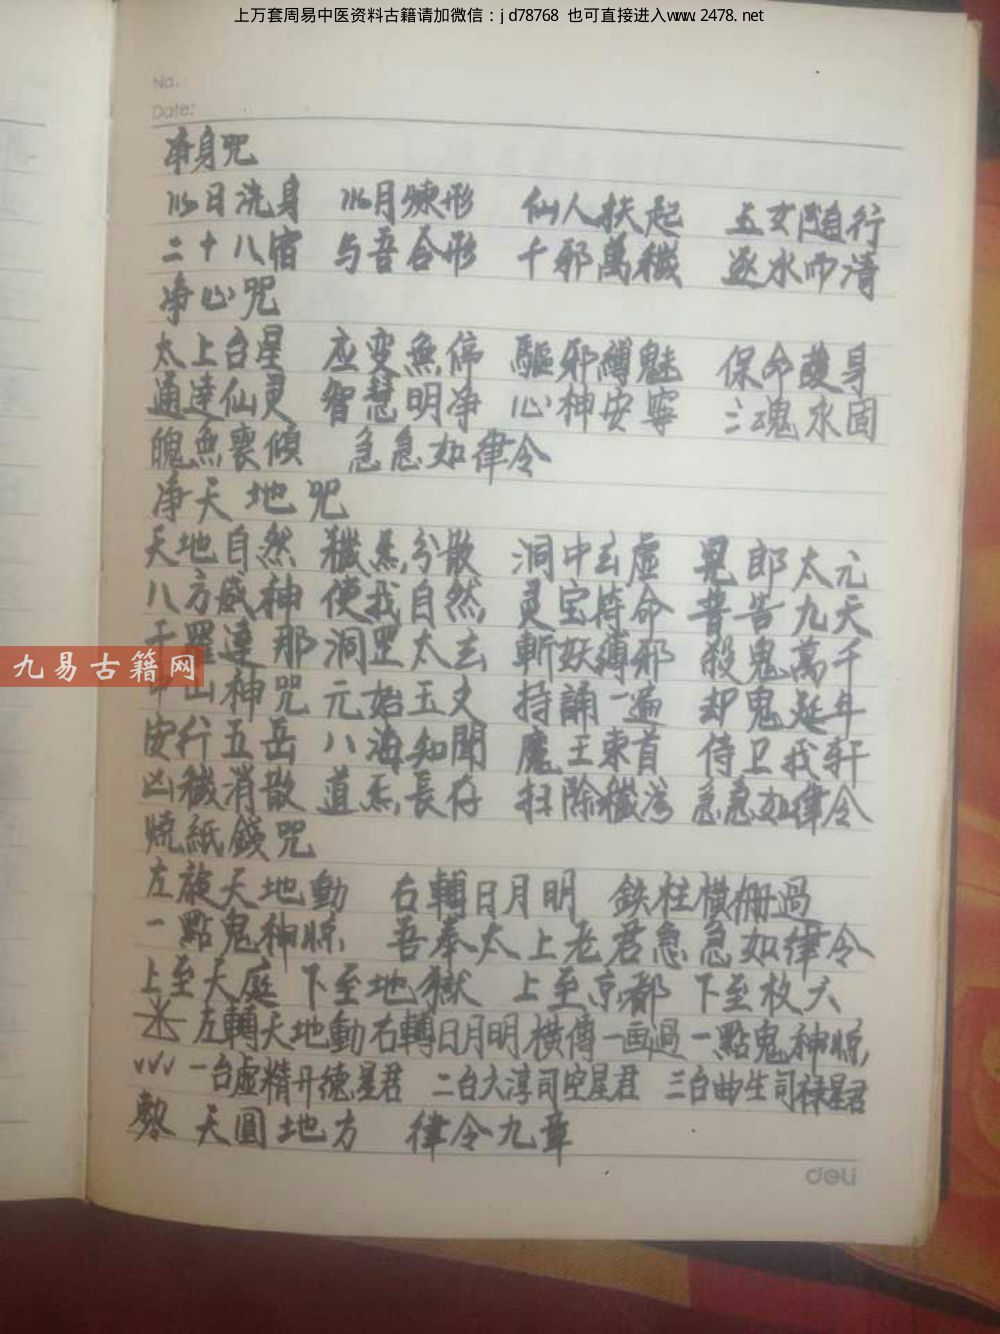 上万套周易中医资料古籍请加微信：jd78768 也可直接进入www.2478.net
No.
Date:
净身咒
以日洗身 以月煉形 仙人扶起 玉女随行
二十八宿 与吾合形 千邪萬穢 逐水而清
净心咒
太上台星 应变無停 驅邪縛魅 保命護身
通達仙灵 智慧明净 心神安寧 三魂永固
魄無喪傾 急急如律令
净天地咒
天地自然 穢炁分散 洞中玄虚 晃郎太元
八方威神 使我自然 灵宝符命 普告九天
干羅達那 洞罡太玄 斬妖縛邪 殺鬼萬千
中山神咒 元始玉文 持誦一遍 却鬼延年
按行五岳 八海知聞 魔王束首 侍卫我轩
凶穢消散 道炁長存 扫除穢 急急如律令
燒紙錢咒
左旋天地動 右轉日月明 鉄柱横栅過
一點鬼神驚 吾奉太上老君急急如律令
上至天庭 下至地獄 上至京都 下至
左轉天地動右轉日月明横傳一画過一點鬼神驚
一台虚精开德星君 二台六淳司空星君 三台曲生司禄星君
敕 天圓地方 律令九章
deli
九易古籍网